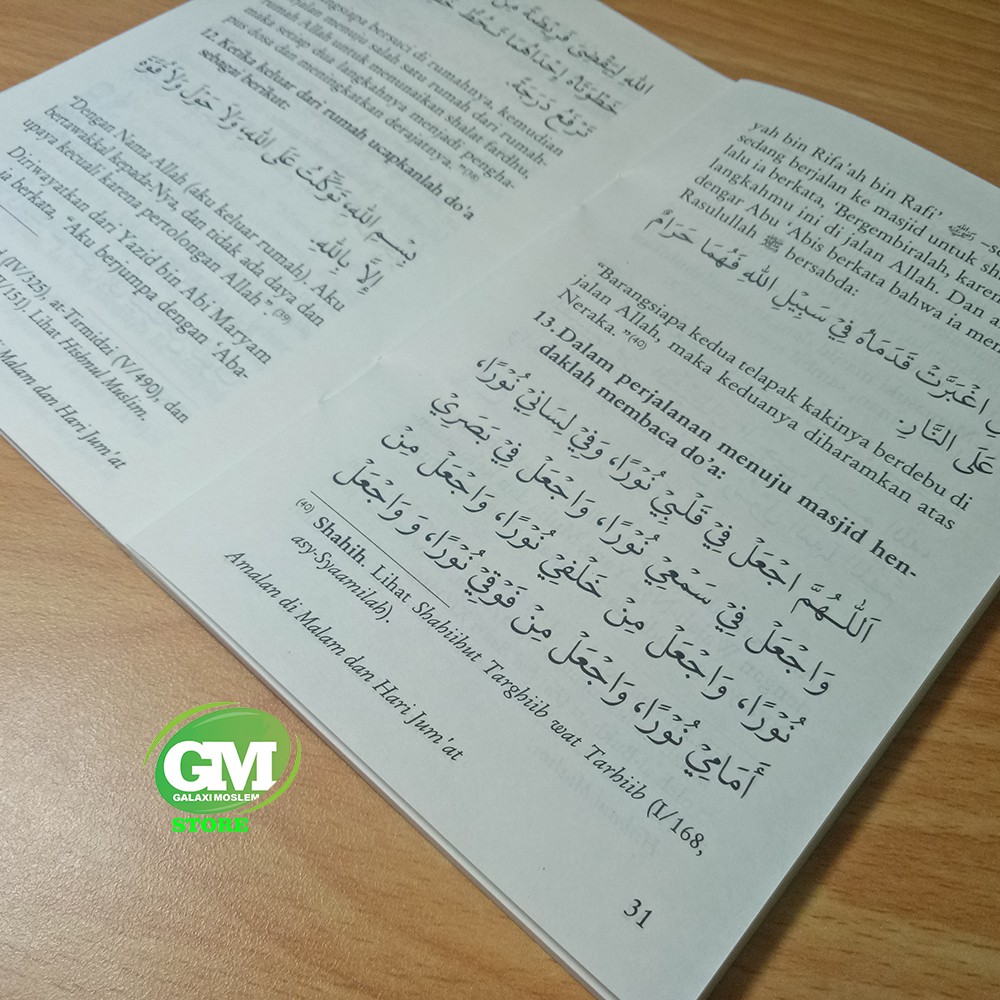 الله لِيَقْضِيَ فَرِيْضَةً مِنْ
خَطْوَتَاهُ إِحْدَاهُمَا تَحُطُّ
تَرْفَعُ دَرَجَةً
bersuci di rumahnya, kemudian
berjalan menuju salah satu rumah dari rumah-
rumah Allah untuk menunaikan shalat fardhu,
maka setiap dua langkahnya menjadi pengha-
pus dosa dan meningkatkan derajatnya." (38)
12. Ketika keluar dari rumah ucapkanlah do'a
sebagai berikut:
بِسْمِ اللهِ تَوَكَّلْتُ عَلَى اللهِ، وَلاَ حَوْلَ وَلاَ قُوَّةَ
إِلاَّ بِاللهِ.
"Dengan Nama Allah (aku keluar rumah). Aku
bertawakkal kepada-Nya, dan tidak ada daya dan
upaya kecuali karena pertolongan Allah." (39)
Diriwayatkan dari Yazid bin Abi Maryam
ia berkata, "Aku berjumpa dengan 'Aba-
(IV/325), at-Tirmidzi (V/490), dan
/151). Lihat Hishnul Muslim.
Malam dan Hari Jum'at
yah bin Rifa'ah bin Rafi'
sedang berjalan ke masjid untuk
lalu ia berkata, 'Bergembiralah, karen
langkahmu ini di jalan Allah. Dan a
dengar Abu 'Abis berkata bahwa ia men
Rasulullah ﷺ bersabda:
اغْبَرَّتْ قَدَمَاهُ فِيْ سَبِيْلِ اللهِ فَهُمَا حَرَامٌ
عَلَى النَّارِ.
"Barangsiapa kedua telapak kakinya berdebu di
jalan Allah, maka keduanya diharamkan atas
Neraka."(40)
13.Dalam perjalanan menuju masjid hen-
daklah membaca do'a:
اَللّٰهُمَّ اجْعَلْ فِيْ قَلْبِيْ نُوْرًا، وَفِيْ لِسَانِيْ نُوْرًا،
وَاجْعَلْ فِيْ سَمْعِيْ نُوْرًا، وَاجْعَلْ فِيْ بَصَرِيْ
نُوْرًا، وَاجْعَلْ مِنْ خَلْفِيْ نُوْرًا، وَاجْعَلْ مِنْ
أَمَامِيْ نُوْرًا، وَاجْعَلْ مِنْ فَوْقِيْ نُوْرًا، وَ وَاجْعَلْ
(40) Shahih. Lihat Shahiihut Targhiib wat Tarhiib (I/168,
asy-Syaamilah).
Amalan di Malam dan Hari Jum'at
31
GM
GALAXI MOSLEM
STORE